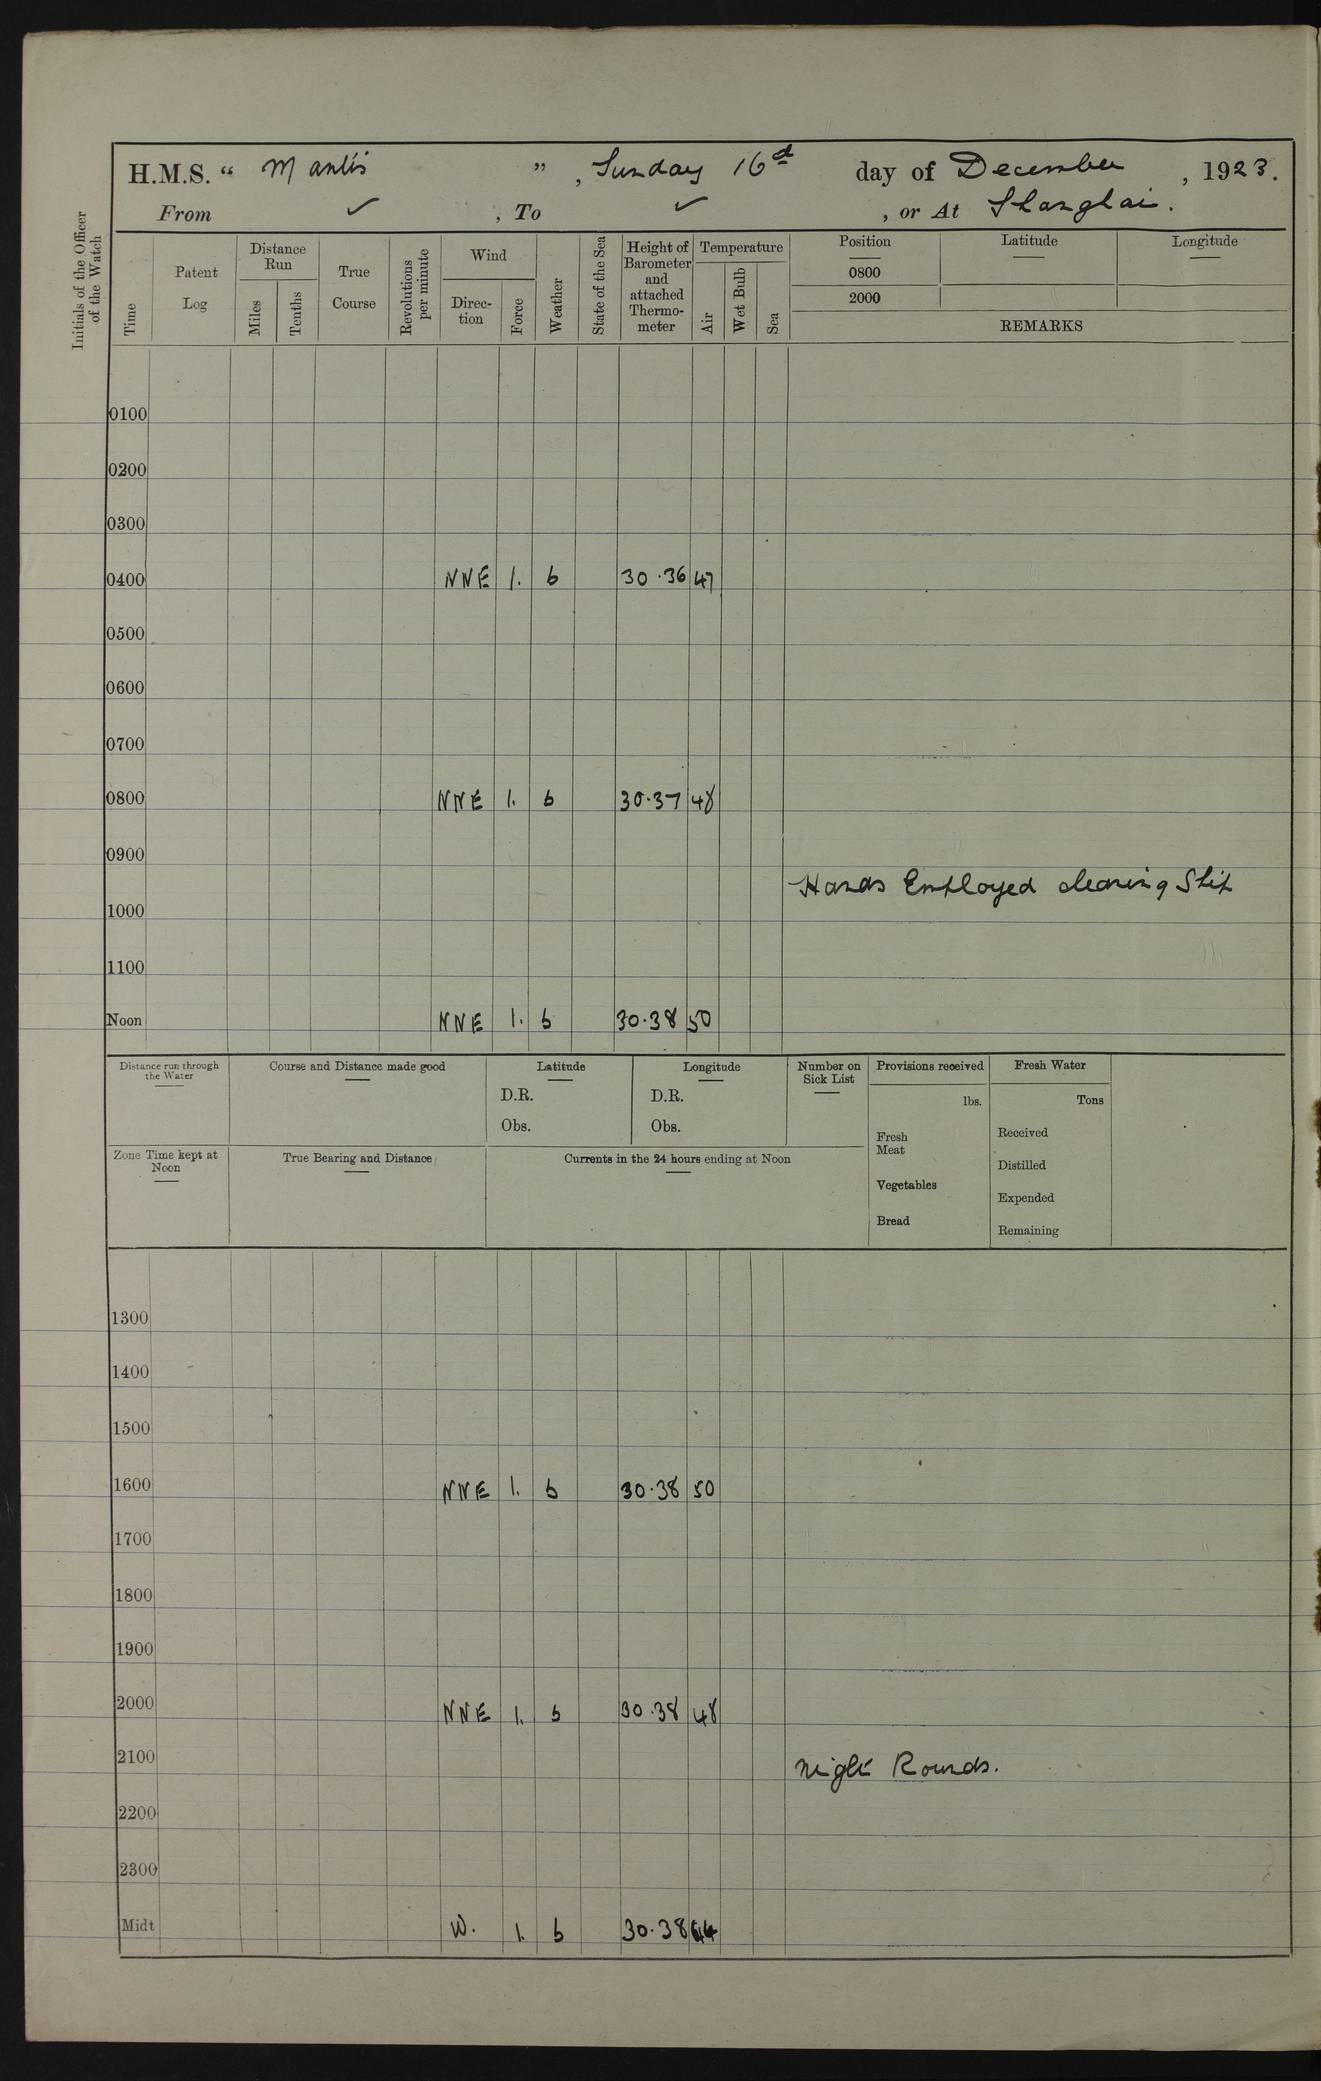 H.M.S. “ Mantis ” , Sunday 16th day of December , 1923.
From ✓ , To ✓ , or At Shanghai.
Initials of the Officer
of the Watch
Time
Patent
Log
Distance
Run
Miles
Tenths
True
Course
Revolutions
per minute
Wind
Direc-
tion
Force
Weather
State of the Sea
Height of
Barometer
and
attached
Thermo-
meter
Temperature
Air
Wet Bulb
Sea
Position Latitude Longitude
0800
2000
REMARKS
0100
0200
0300
0400 NNE 1. b 30.36 47
0500
0600
0700
0800 NNE 1. b 30.37 48
0900
Hands Employed cleaning Ship
1000
1100
Noon NNE 1. b 30.38 50
Distance run through
the Water
Course and Distance made good
Latitude
D.R.
Obs.
Longitude
D.R.
Obs.
Number on
Sick List
Provisions received
lbs.
Fresh
Meat
Vegetables
Bread
Fresh Water
Tons
Received
Distilled
Expended
Remaining
Zone Time kept at
Noon
True Bearing and Distance
Currents in the 24 hours ending at Noon
1300
1400
1500
1600 NNE 1. b 30.38 50
1700
1800
1900
2000 NNE 1. b 30.38 48
2100 Night Rounds.
2200
2300
Midt W. 1. b 30.38 44